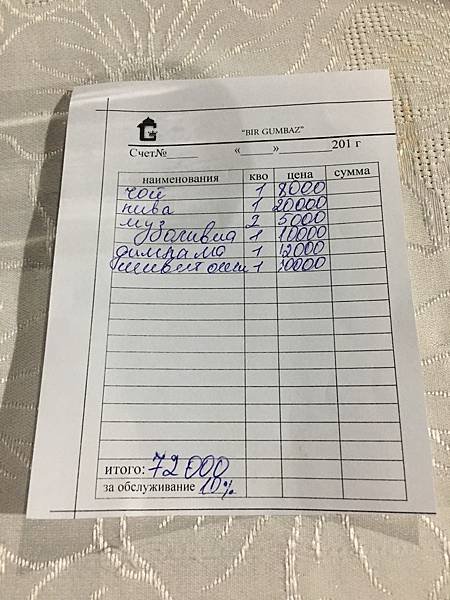 "BIR GUMBAZ"
Счет№ « » 201 г
наименования кво цена сумма
чой 1 8000
пива 1 20000
муз 2 5000
1 10000
димлама 1 12000
шивит оши 1 10000
итого: 72000
за обслуживание 10%